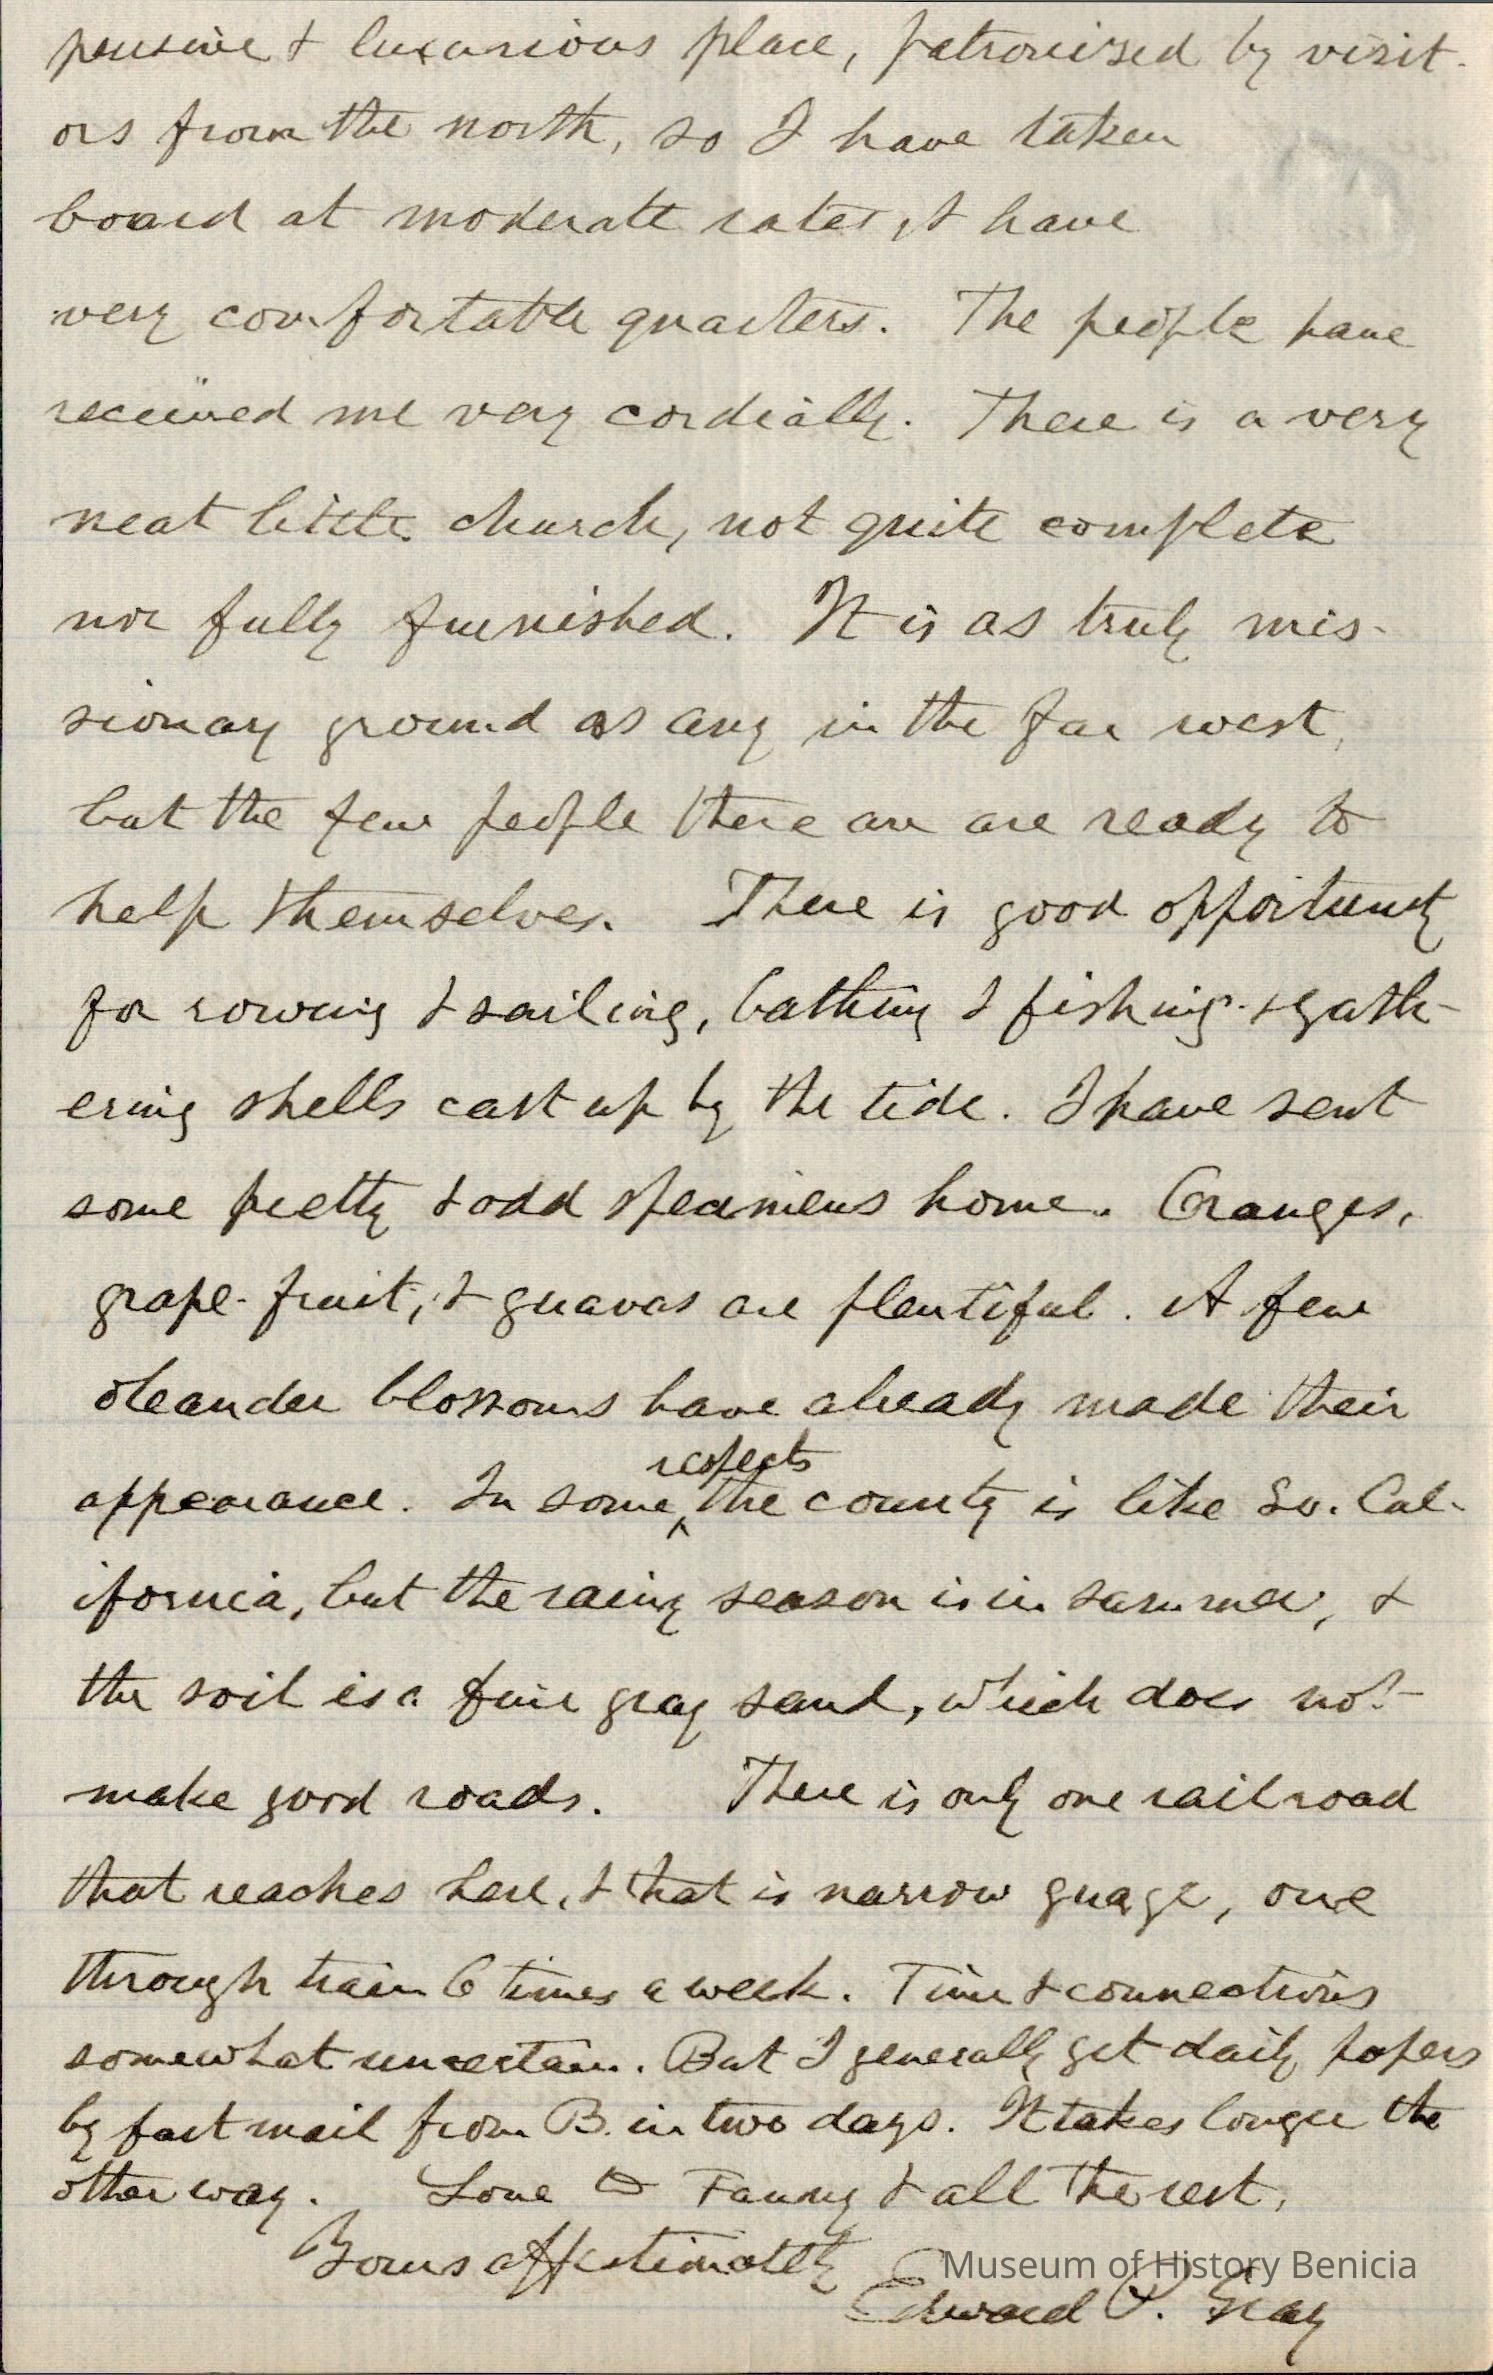 pensive & luxurious place, patronised by visit-
ors from the north, so I have taken
board at moderate rates, & have
very comfortable quarters. The people have
received me very cordially. There is a very
neat little church, not quite complete
nor fully furnished. It is as truly mis-
sionary ground as any in the far west,
but the few people there are are ready to
help themselves. There is good opportunity
for rowing & sailing, bathing & fishing & gath-
ering shells cast up by the tide. I have sent
some pretty & odd specimens home. Oranges,
grape-fruit, & guavas are plentiful. A few
oleander blossoms have already made their
respects
appearance. In some ^ the county is like So. Cal-
ifornia, but the rainy season is in summer, &
the soil is a fine gray sand, which does not
make good roads. There is only one railroad
that reaches here, & that is narrow guage, one
through train 6 times a week. Time & connections
somewhat uncertain. But I generally get daily papers
by fast mail from B. in two days. It takes longer the
other way. Love to Fanny & all the rest,
Yours affectionately
Museum of History Benicia
Edward P. Gray